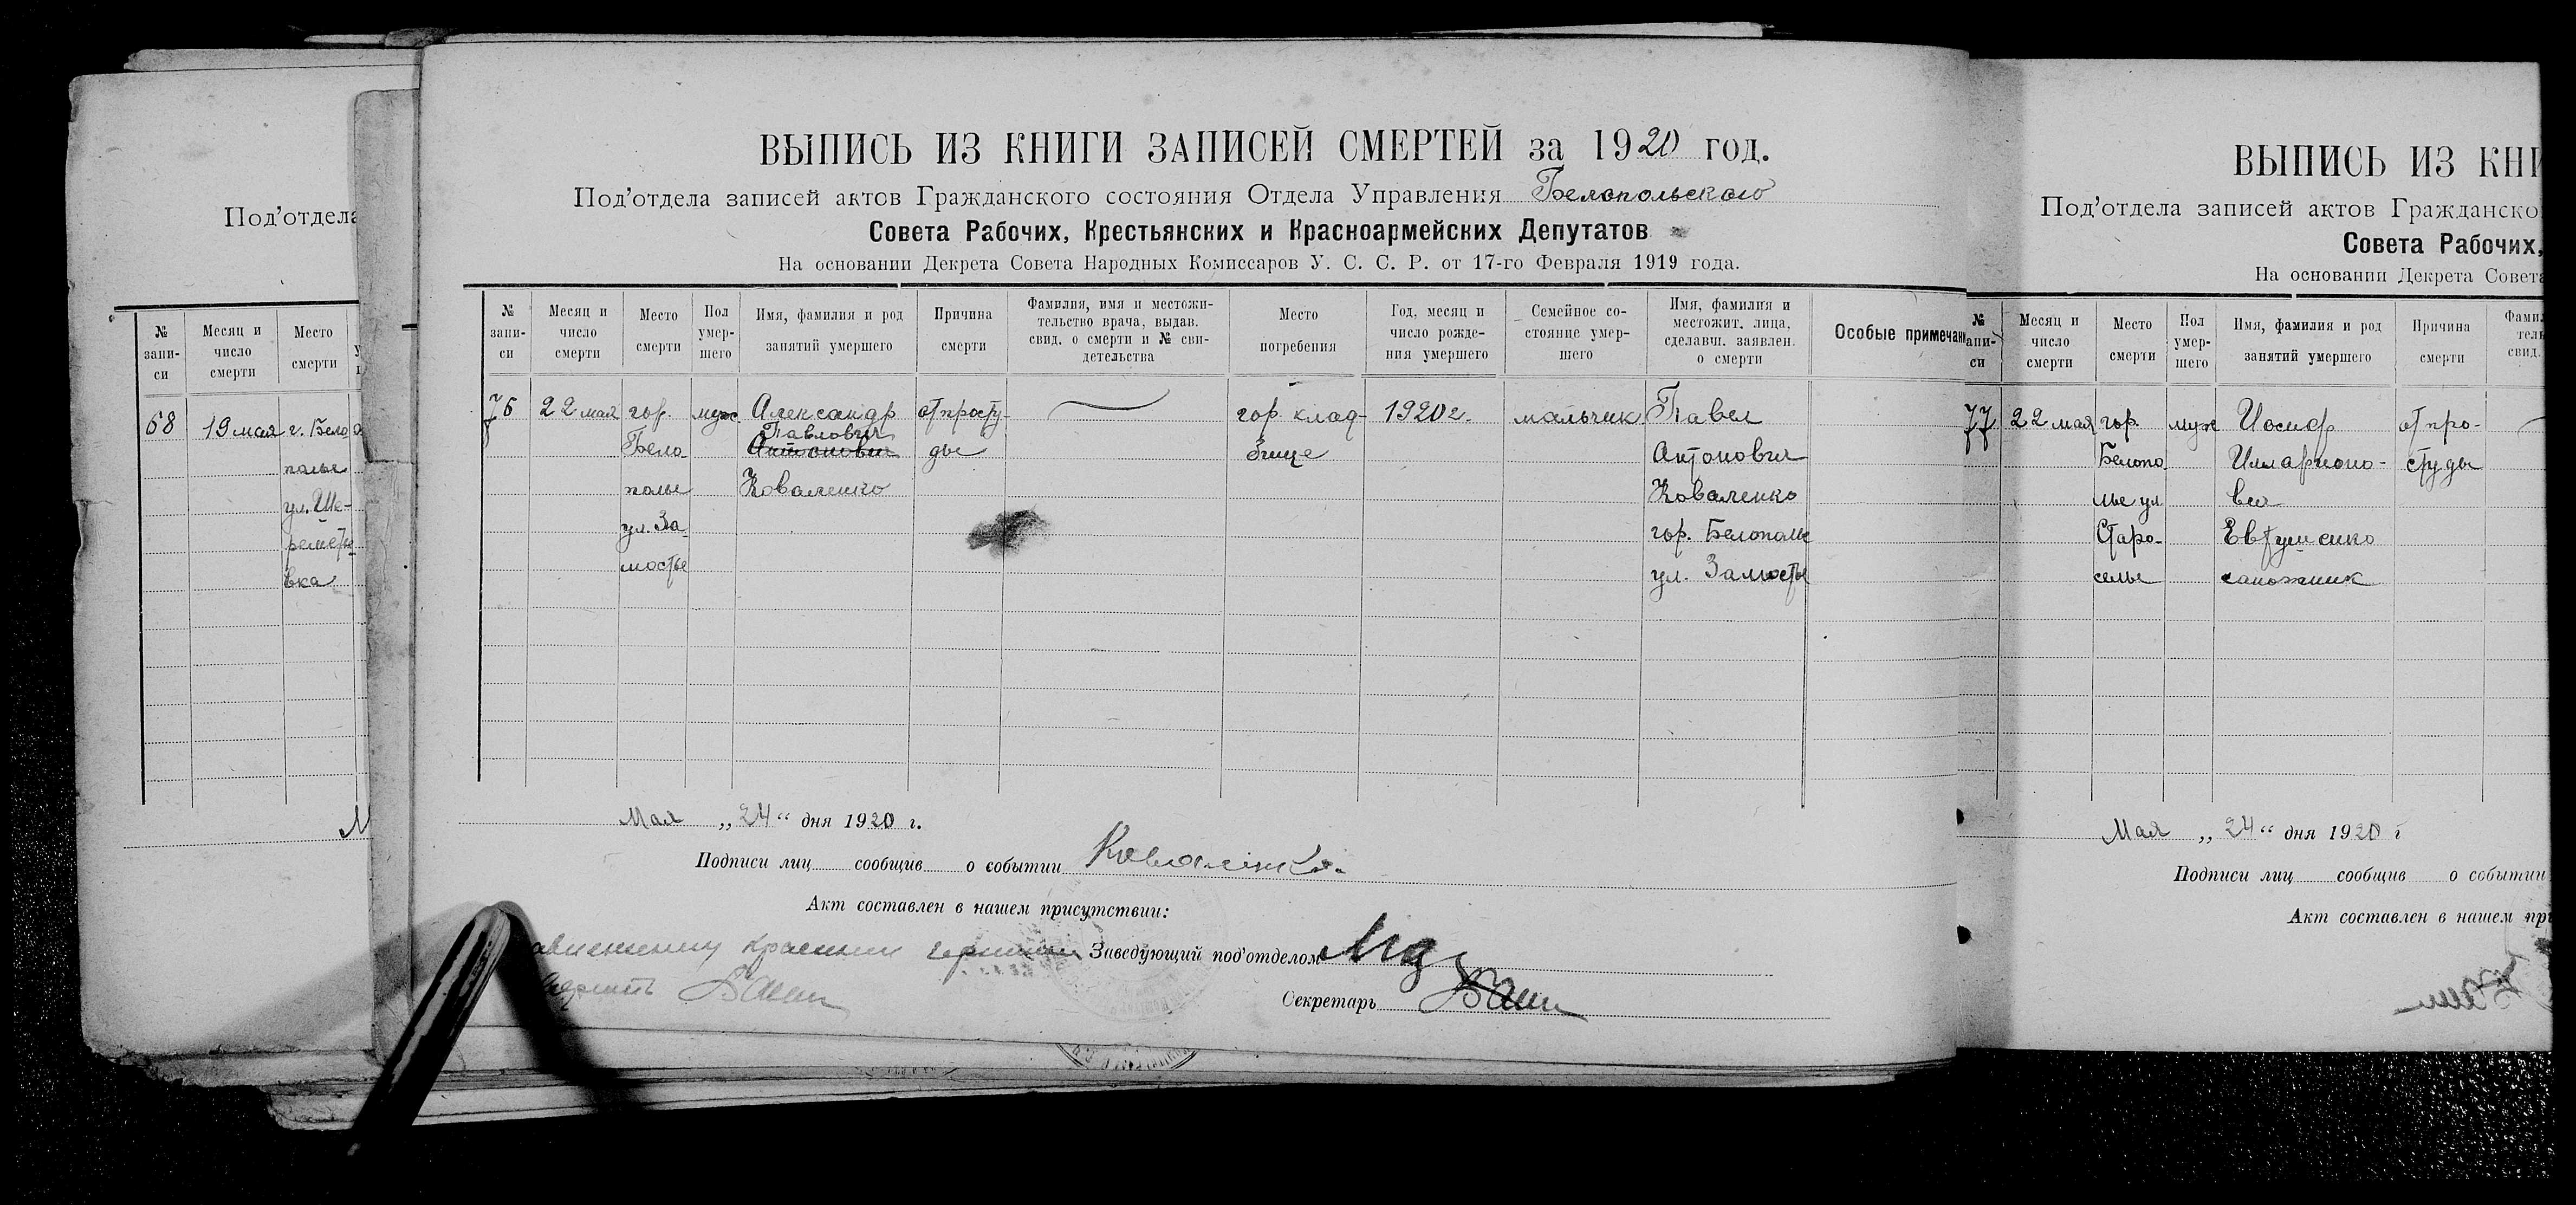 Под'отдела
№ запи-си
Месяц и число смерти
Место смерти
68 19 мая г. Бело
полье
ул. Ше-
реметь
евка
ВЫПИСЬ ИЗ КНИГИ ЗАПИСЕЙ СМЕРТЕЙ за 1920 год.
Под'отдела записей актов Гражданского состояния Отдела Управления Белопольского
Совета Рабочих, Крестьянских и Красноармейских Депутатов
На основании Декрета Совета Народных Комиссаров У. С. С. Р. от 17-го Февраля 1919 года.
№ запи-си
Месяц и число смерти
Место смерти
Пол умер-шего
Имя, фамилия и род занятий умершего
Причина смерти
Фамилия, имя и местожи-тельство врача, выдав. свид. о смерти и № сви-детельства
Место погребения
Год, месяц и число рожде-ния умершего
Семейное со-стояние умер-шего
Имя, фамилия и местожит. лица, сделавш. заявлен. о смерти
Особые примечан
76 22 мая гор. муж. Александр от просту- гор. клад- 1920 г. мальчик Павел
Павлович
Бело Антонович ды бище Антонович
полье Коваленко Коваленко
ул. За гор. Белополье
мостье ул. Замостье
Мая „24“ дня 1920 г.
Подписи лиц сообщив о событии Коваленко
Акт составлен в нашем присутствии:
Заведующий под'отделом
Секретарь
ВЫПИСЬ ИЗ КНИ
Под'отдела записей актов Гражданско
Совета Рабочих,
На основании Декрета Совета
№ запи-си
Месяц и число смерти
Место смерти
Пол умер-шего
Имя, фамилия и род занятий умершего
Причина смерти
77 22 мая гор. муж Иосиф от про-
Белопо Илларионо- студы
лье ул вич
Старо- Евтушенко
селье сапожник
Мая „24“ дня 1920 г
Подписи лиц сообщив о событии
Акт составлен в нашем при